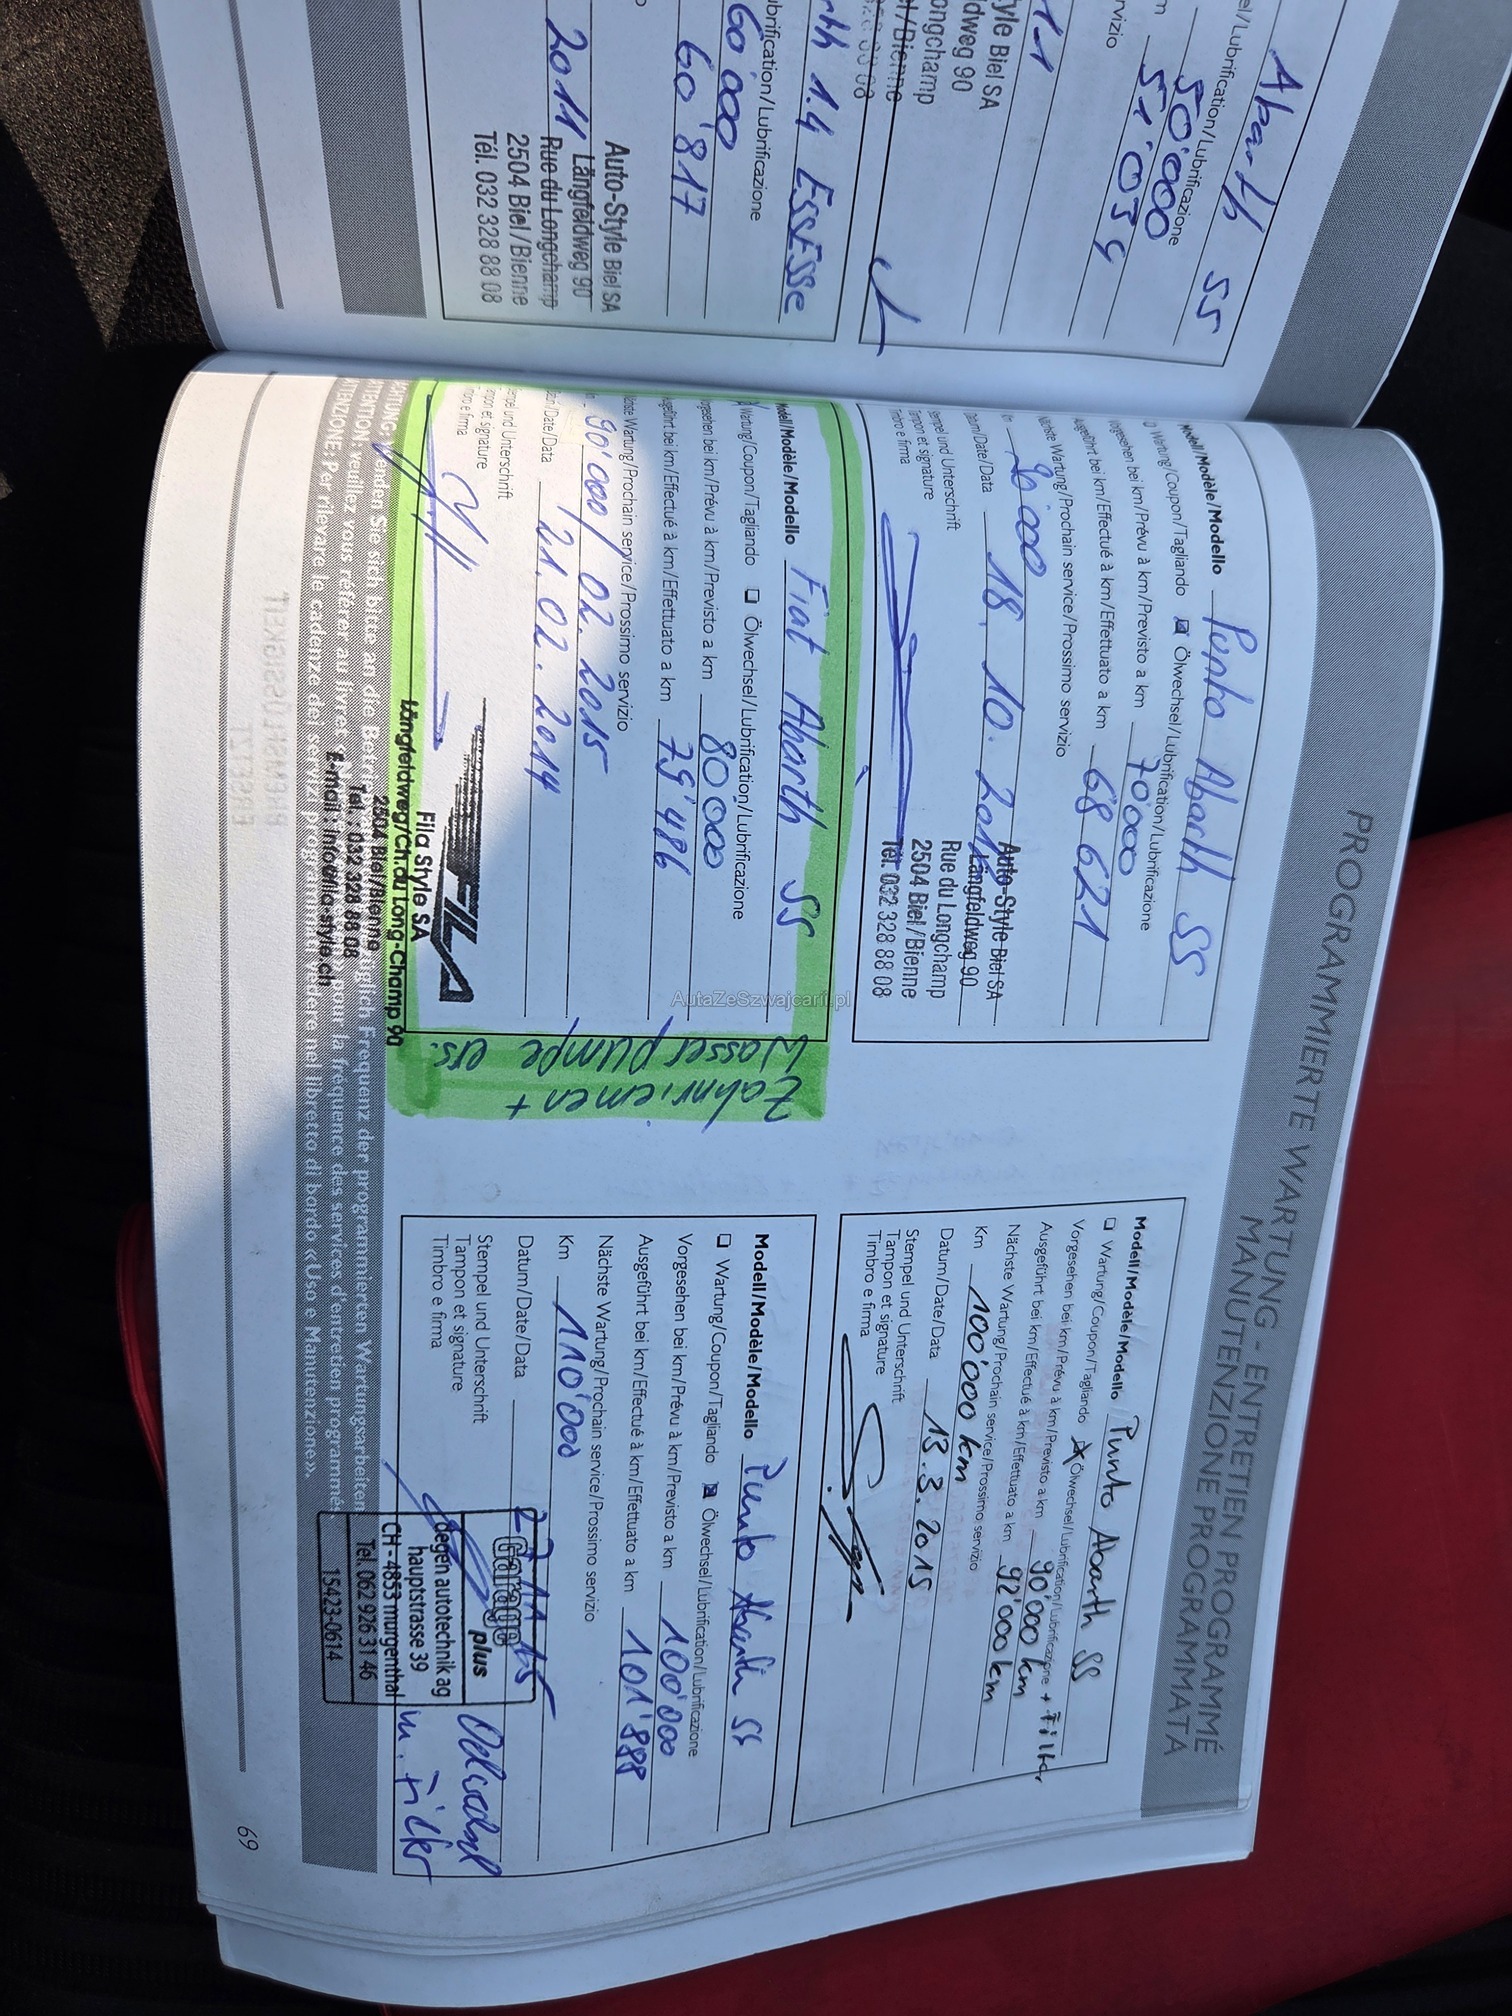 Abarth SS
el/Lubrification/Lubrificazione
50'000
51'034
servizio
Auto-Style Biel SA
Längfeldweg 90
Rue du Longchamp
2504 Biel/Bienne
Abarth 1.4 ESSESSE
Lubrification/Lubrificazione
60'000
60'817
2011
Auto-Style Biel SA
Längfeldweg 90
Rue du Longchamp
2504 Biel/Bienne
Tél. 032 328 88 08
PROGRAMMIERTE WARTUNG - ENTRETIEN PROGRAMMÉ
MANUTENZIONE PROGRAMMATA
Modell/Modèle/Modello Punto Abarth SS
Wartung/Coupon/Tagliando Ölwechsel/Lubrification/Lubrificazione
Vorgesehen bei km/Prévu à km/Previsto a km 70'000
Ausgeführt bei km/Effectué à km/Effettuato a km 68'621
Nächste Wartung/Prochain service/Prossimo servizio
Datum/Date/Data 18. 10.
Stempel und Unterschrift
Tampon et signature
Timbro e firma
Auto-Style Biel SA
Längfeldweg 90
Rue du Longchamp
2504 Biel/Bienne
Tél. 032 328 88 08
Modell/Modèle/Modello Fiat Abarth SS
Wartung/Coupon/Tagliando Ölwechsel/Lubrification/Lubrificazione
Vorgesehen bei km/Prévu à km/Previsto a km 80'000
Ausgeführt bei km/Effectué à km/Effettuato a km 79'486
Nächste Wartung/Prochain service/Prossimo servizio
90'000 / 02. 2015
Datum/Date/Data 21. 02. 2014
Stempel und Unterschrift
Tampon et signature
Timbro e firma
FILA
Fila Style SA
Längfeldweg/Ch.du Long-Champ 90
2504 Biel/Bienne
Tel. : 032 328 88 08
E-mail : info@fila-style.ch
Zahnriemen +
Wasserpumpe ers.
Modell/Modèle/Modello Punto Abarth SS
Wartung/Coupon/Tagliando Ölwechsel/Lubrification/Lubrificazione + Filter
Vorgesehen bei km/Prévu à km/Previsto a km 90'000 km
Ausgeführt bei km/Effectué à km/Effettuato a km 92'000 km
Nächste Wartung/Prochain service/Prossimo servizio
Km 100'000 km
Datum/Date/Data 13.3.2015
Stempel und Unterschrift
Tampon et signature
Timbro e firma
Modell/Modèle/Modello Punto Abarth SS
Wartung/Coupon/Tagliando Ölwechsel/Lubrification/Lubrificazione
Vorgesehen bei km/Prévu à km/Previsto a km 100'000
Ausgeführt bei km/Effectué à km/Effettuato a km 101'888
Nächste Wartung/Prochain service/Prossimo servizio
Km 110'000
Datum/Date/Data
Stempel und Unterschrift
Tampon et signature
Timbro e firma
Garage plus
degen autotechnik ag
hauptstrasse 39
CH - 4853 murgenthal
Tel. 062 926 31 46
15423-0614
Oelwechsel
m. Filter
wenden Sie sich bitte an die
Frequenz der programmierten Wartungsarbeiten
ATTENTION: veuillez vous référer au livret
pour la fréquence des services d'entretien programmés
ATTENZIONE: Per rilevare le cadenze dei servizi programmati
vedere nel libretto di bordo «Uso e Manutenzione».
69
AutaZeSzwajcarii.pl